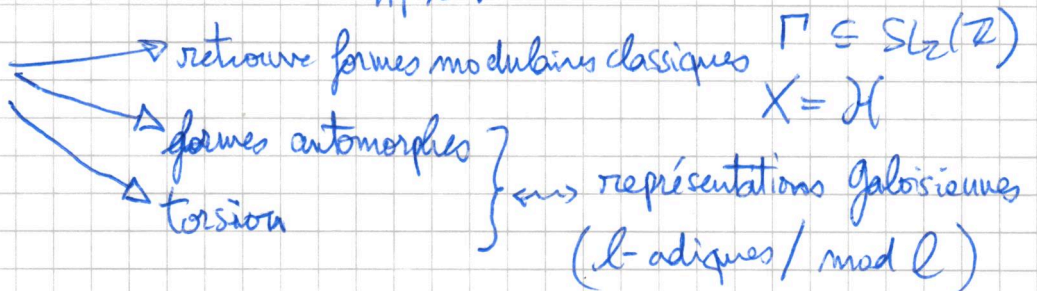 → retrouve formes modulaires classiques Γ ⊆ SL₂(ℤ)
X = ℋ
→ formes automorphes
→ torsion } ↔ représentations Galoisiennes
(ℓ-adiques / mod ℓ)